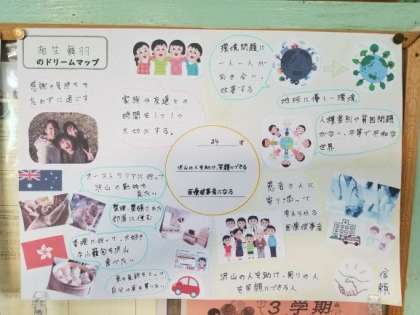 のドリームマップ
感謝の気持ちを
忘れずに過ごす
家族や友達との
時間を
大切にする。
環境問題に
一人一人が
向き合い
改善する
地球に優しい環境
人種差別や貧困問題
がない、平等で平和な
世界
24 才
沢山の人を助け、笑顔にできる
医療従事者になる
オーストラリアに行って
沢山の動物を
見たい
整理・整頓された
部屋に住む
香港に行って、大好き
な小籠包を沢山
食べたい
自分の家を買いたい
患者さんに
寄り添って
考えられる
医療従事者
沢山の人を助け、周りの人
を笑顔にできる人
信頼
3学期